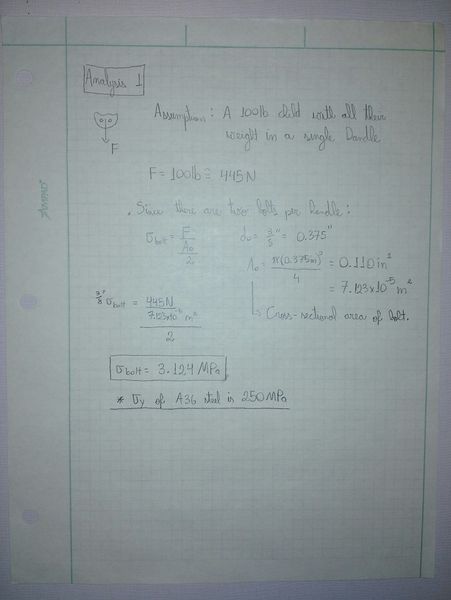 Analysis 1
Assumption: A 100lb child with all their
weight in a single handle
F
F = 100lb ≅ 445N
. Since there are two bolts per handle:
σbolt = F / A₀ / 2
d₀ = 3/8" = 0.375"
A₀ = π(0.375in)² / 4 = 0.110in²
= 7.123x10⁻⁵ m²
↳ Cross-sectional area of bolt.
3/8" σbolt = 445N / 7.123x10⁻⁵ m² / 2
σbolt = 3.124 MPa
* σy of A36 steel is 250MPa